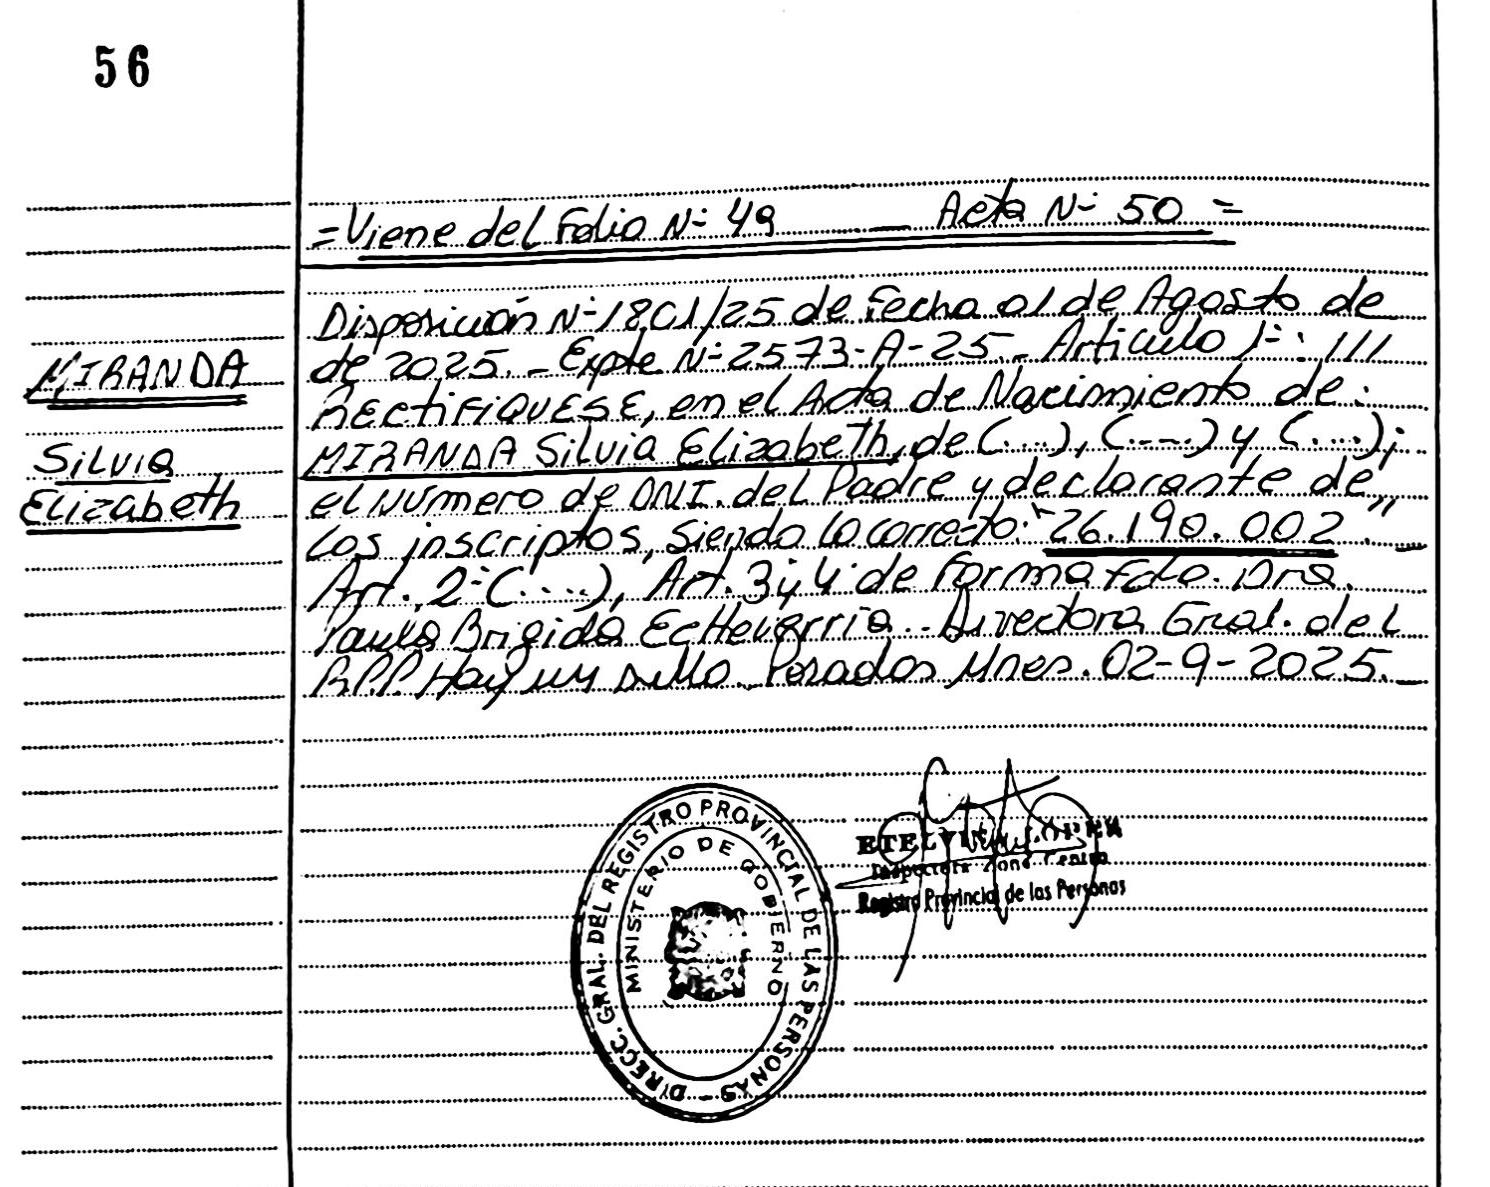 56
=Viene del Folio N- 49 _ Acta N- 50 =
MIRANDA
Silvia
Elizabeth
Disposición N-1801/25 de Fecha 01 de Agosto de
de 2025._ Expte N-2573-A-25._ Articulo 1-: 111
RECTIFIQUESE, en el Acta de Nacimiento de:
MIRANDA Silvia Elizabeth, de (....), (....) y (....);
el Número de DNI. del Padre y declarante de
los inscriptos, siendo lo correcto: "26.190.002."_
Art. 2-(....), Art. 3 y 4- de Forma Fdo. Dra.
Paula Brigida Echeverria.. Directora Gral. del
R.P.P. Hay un sello. Posadas Mnes. 02-9-2025._
DIRECC. GRAL. DEL REGISTRO PROVINCIAL DE LAS PERSONAS -
MINISTERIO DE GOBIERNO
ETELVINA
Inspectora Zona Centro
Registro Provincial de las Personas